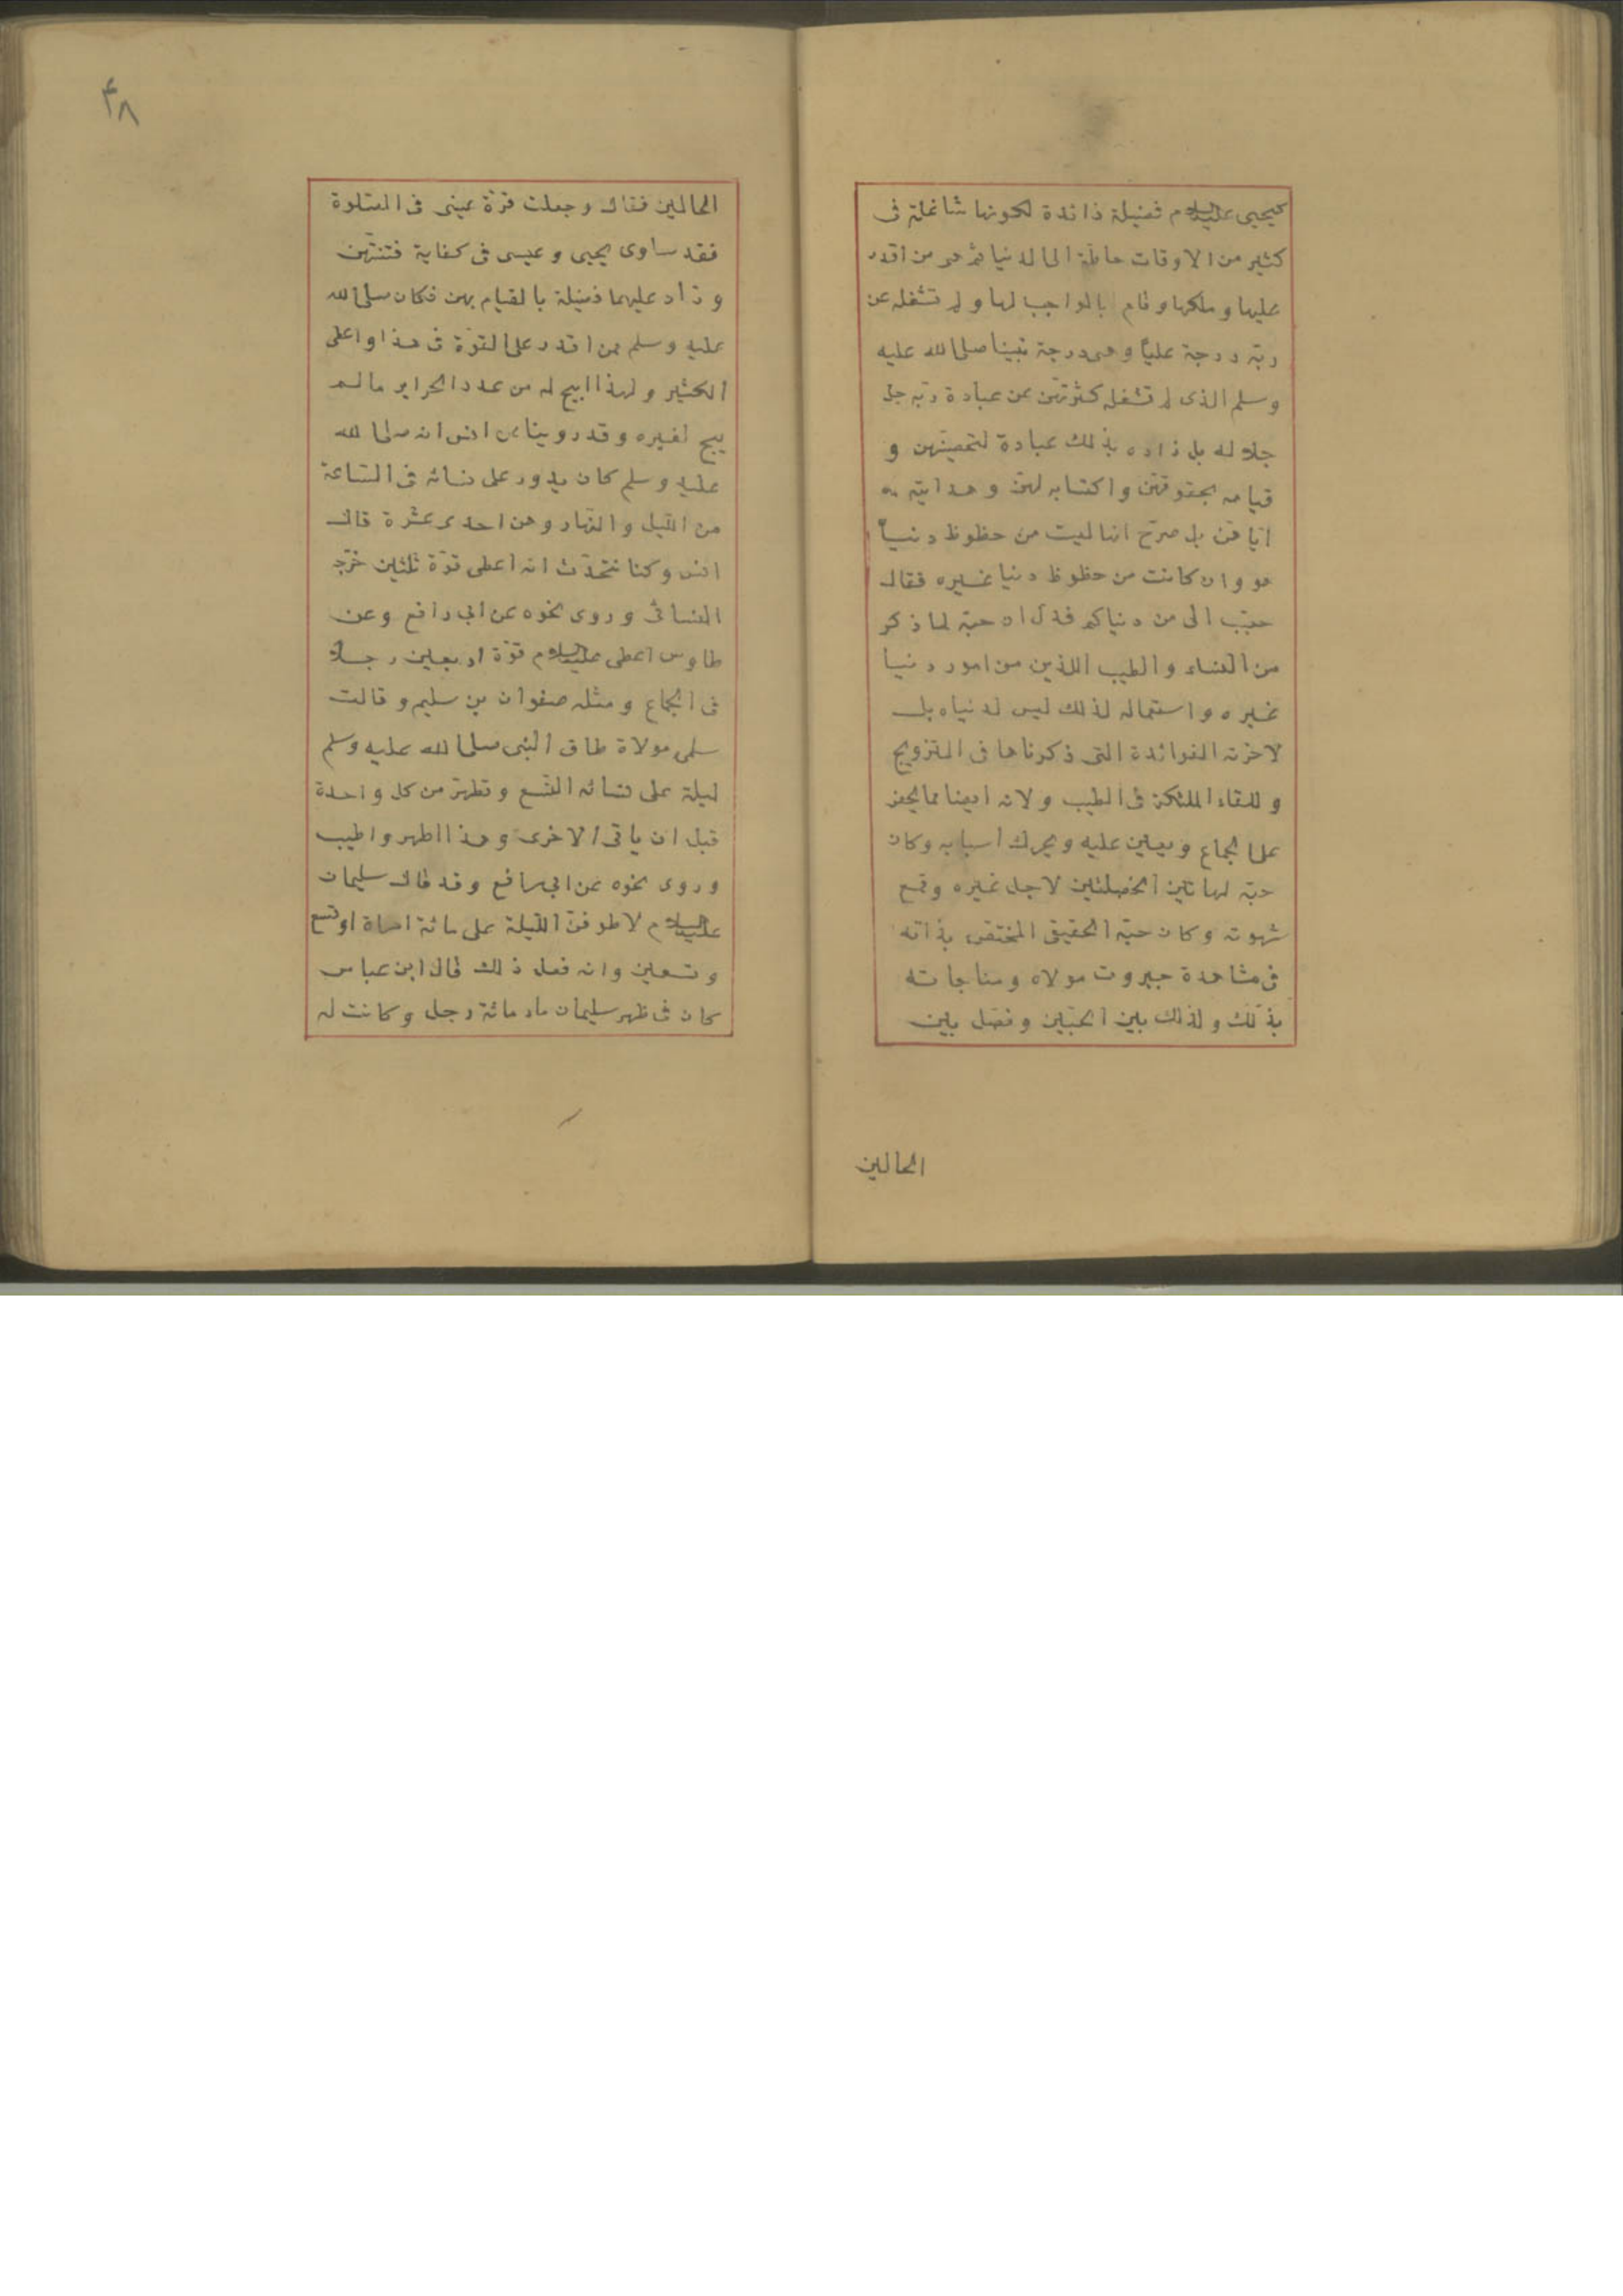 كيحيى عليه السلام فضيلة زائدة لكونها شاغلة فى
كثير من الاوقات حاطة الى الدنيا ثم هى من اقدر
عليها وملكها وقام بالواجب لها ولم تشغله عن
ربه درجة عليا وهى درجة نبينا صلى الله عليه
وسلم الذى لم تشغله كثرتهن عن عبادة ربه جل
جلاله بل زاده بذلك عبادة لتحصينهن و
قيامه بحقوقهن واكتسابه لهن وهدايته
اياهن بل صرح انها ليست من حظوظ دنيا
هو وان كانت من حظوظ دنيا غيره فقال
حبب الى من دنياكم فدل ان حبه لما ذكر
من النساء والطيب اللذين من امور دنيا
غيره واستعماله لذلك ليس لدنياه بل
لآخرته الفوائدة التى ذكرناها فى التزويج
وللقاء الملئكة فى الطيب ولانه ايضا مما يحض
على الجماع ويعين عليه ويحرك اسبابه وكان
حبه لهاتين الخصلتين لاجل غيره وقمع
شهوته وكان حبه الحقيقى المختص بذاته
فى مشاهدة جبروت مولاه ومناجاته
بذلك ولذلك بين الحبين وفصل بين
الحالين
۴۸
الحالين فقال وجعلت قرة عينى فى الصلوة
فقد ساوى يحيى وعيسى فى كفاية فتنتهن
وزاد عليهما فضيلة بالقيام بهن فكان صلى الله
عليه وسلم ممن اقدر على القوة فى هذا واعطى
الكثير ولهذا ابيح له من عدد الحراير ما لم
يبح لغيره وقد روينا عن انس انه صلى الله
عليه وسلم كان يدور على نسائه فى الساعة
من الليل والنهار وهن احدى عشرة قال
انس وكنا نتحدث انه اعطى قوة ثلثين خرجه
النسائى وروى نحوه عن ابى رافع وعن
طاوس اعطى عليه السلام قوة اربعين رجلا
فى الجماع ومثله صفوان بن سليم وقالت
سلمى مولاة طاف النبى صلى الله عليه وسلم
ليلة على نسائه التسع وتطهر من كل واحدة
قبل ان ياتى الاخرى وهذا اطهر واطيب
وروى نحوه عن ابى رافع وقد قال سليمان
عليه السلام لاطوفن الليلة على مائة امراة او تسع
وتسعين وانه فعل ذلك قال ابن عباس
كان فى ظهر سليمان ماء مائة رجل وكانت له